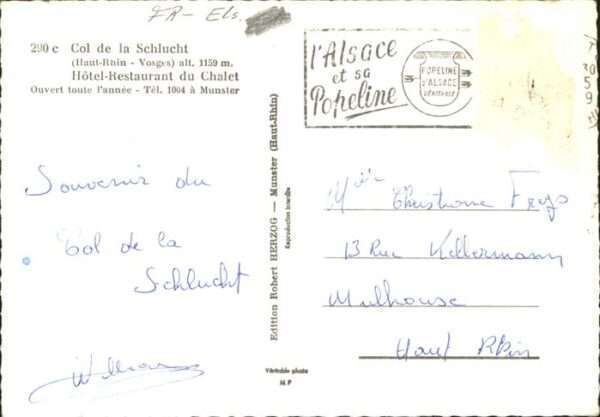 FR - Els.
290 c Col de la Schlucht
(Haut-Rhin - Vosges) alt. 1159 m.
Hôtel-Restaurant du Chalet
Ouvert toute l'année - Tél. 1004 à Munster
l'Alsace
et sa
Popeline
POPELINE
D'ALSACE
VÉRITABLE
Souvenir du
Col de la
Schlucht
Edition Robert HERZOG — Munster (Haut-Rhin)
Reproduction interdite
Véritable photo
M P
Mlle Christiane
13 Rue Kellermann
Mulhouse
Haut Rhin